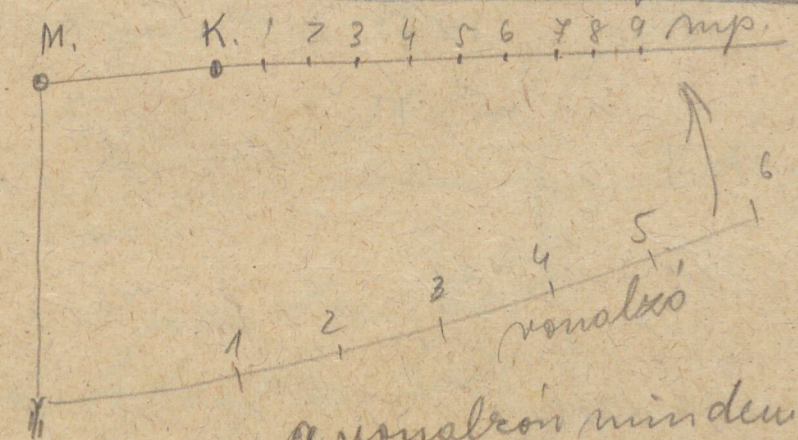 M. K. 1 2 3 4 5 6 7 8 9 mp.
6
5
4
3
2
1
vonalzó
a vonalzón minden